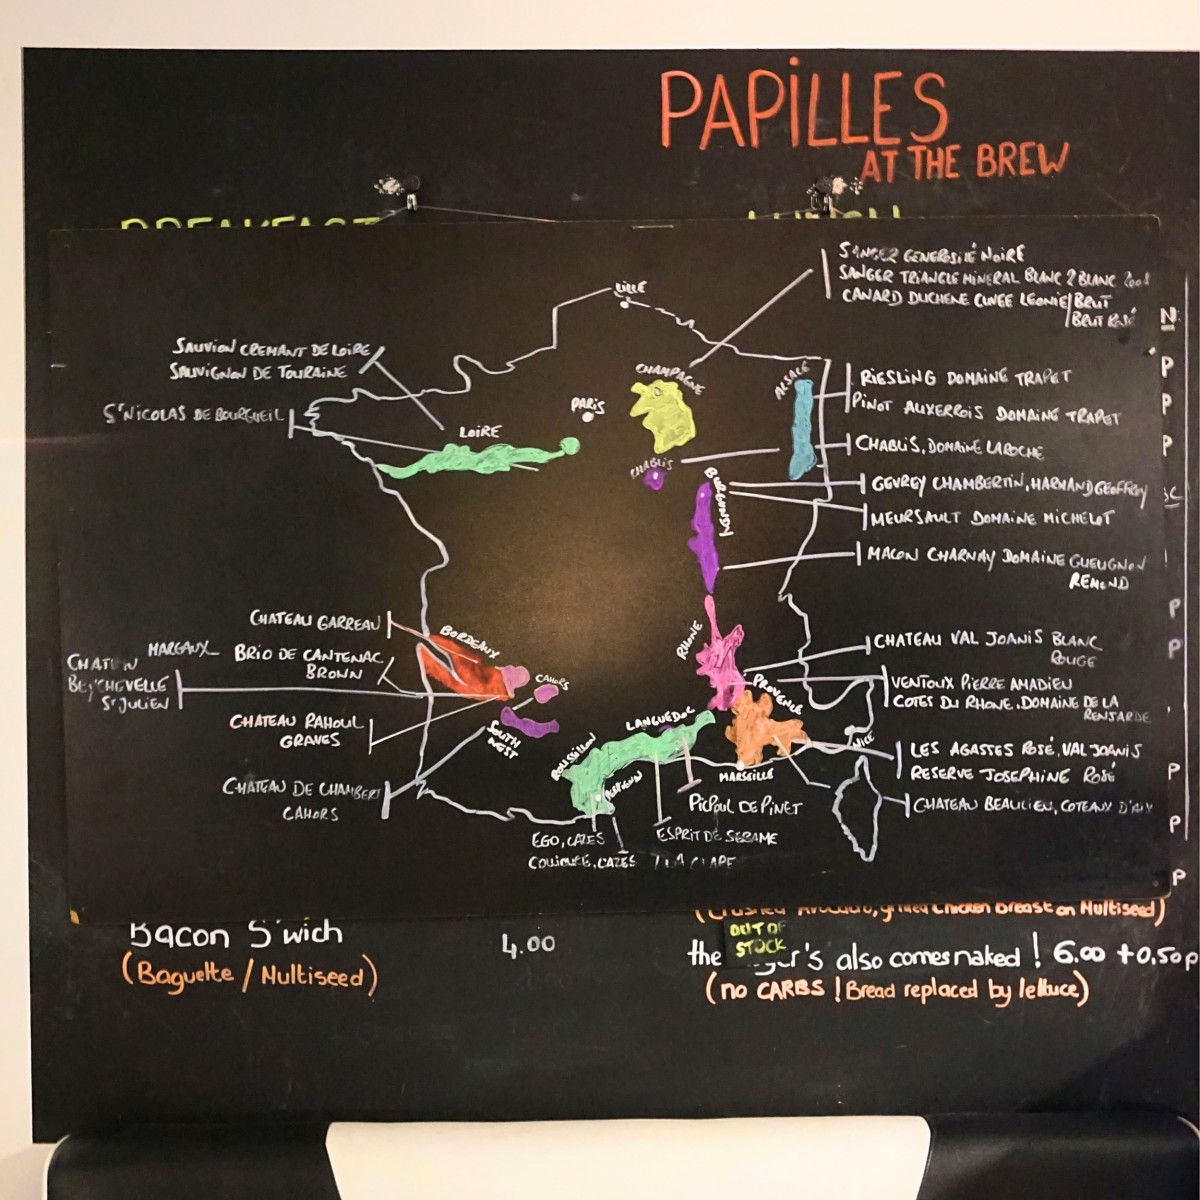 PAPILLES
AT THE BREW
BREAKFAST
LUNCH
SANGER GENEROSITÉ NOIRE
SANGER TRIANGLE MINERAL BLANC 2 BLANC
CANARD DUCHENE CUVEE LEONIE/BRUT
/BRUT ROSÉ
LILLE
SAUVION CREMANT DE LOIRE
SAUVIGNON DE TOURAINE
ST NICOLAS DE BOURGUEIL
PARIS
CHAMPAGNE
ALSACE
LOIRE
CHABLIS
BURGUNDY
RIESLING DOMAINE TRAPET
PINOT AUXERROIS DOMAINE TRAPET
CHABLIS, DOMAINE LAROCHE
GEVREY CHAMBERTIN, HARMAND GEOFFROY
MEURSAULT DOMAINE MICHELOT
MACON CHARNAY DOMAINE GUEUGNON
REMOND
CHATEAU GARREAU
MARGAUX
BRIO DE CANTENAC
BROWN
BEYCHEVELLE
ST JULIEN
CHATEAU RAHOUL
GRAVES
CHATEAU DE CHAMBERT
CAHORS
BORDEAUX
CAHORS
SOUTH
WEST
RHONE
PROVENCE
LANGUEDOC
ROUSSILLON
PERPIGNAN
MARSEILLE
NICE
CHATEAU VAL JOANIS BLANC
ROUGE
VENTOUX PIERRE AMADIEU
COTES DU RHONE, DOMAINE DE LA
RENJARDE
LES AGASSES ROSÉ, VAL JOANIS
RESERVE JOSEPHINE ROSÉ
CHATEAU BEAULIEU, COTEAUX D'AIX
PICPOUL DE PINET
ESPRIT DE SERAME
EGO, CAZES
COLLIOURE, CAZES / LA CLAPE
Bacon S'wich
4.00
(Baguette / Multiseed)
(Crushed Avocado, grilled Chicken Breast on Multiseed)
OUT OF
STOCK
the also comes naked ! 6.00 +0.50p
(no CARBS ! Bread replaced by lettuce)